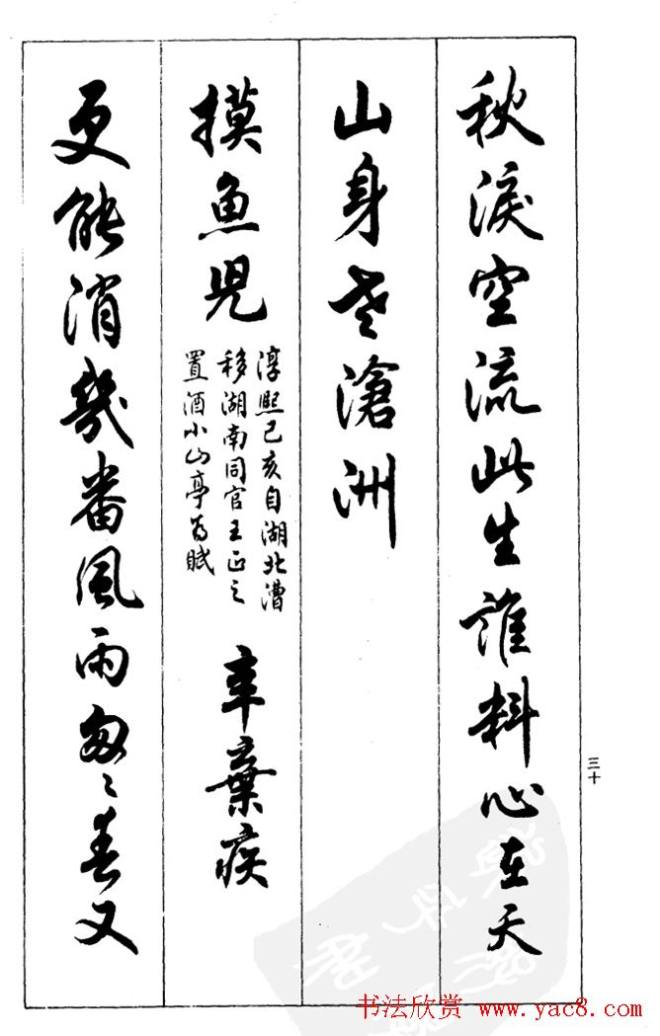 秋淚空流此生誰料心在天
山身老滄洲
摸魚児
淳熙己亥自湖北漕
移湖南同官王正之
置酒小山亭為賦
辛棄疾
更能消幾番風雨匆〻春又
三十
书法欣赏 www.yac8.com